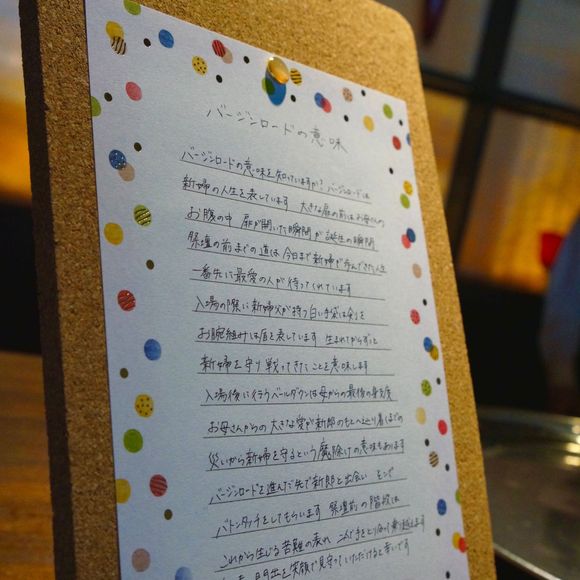 バージンロードの意味
バージンロードの意味を知っていますか？ バージンロードは
新婦の人生を表しています 大きな扉の前はお母さんの
お腹の中 扉が開いた瞬間が誕生の瞬間
祭壇の前までの道は今日まで新婦が歩んできた人生
一番先に最愛の人が待ってくれています
入場の際に新婦父が持つ白い手袋は剣を
お腕組みは盾を表しています 生まれてからずっと
新婦を守り戦ってきたことを意味します
入場後に行うベールダウンは母からの最後の身支度
お母さんからの大きな愛が新郎のもとへ辿り着くまでの
災いから新婦を守るという魔除けの意味もあります
バージンロードを進んだ先で新郎と出会い そこで
バトンタッチをしてもらいます 祭壇前の階段は
これから生じる苦難の表れ 二人で手をとり合って乗り越えます
門出を笑顔で見守っていただけると幸いです